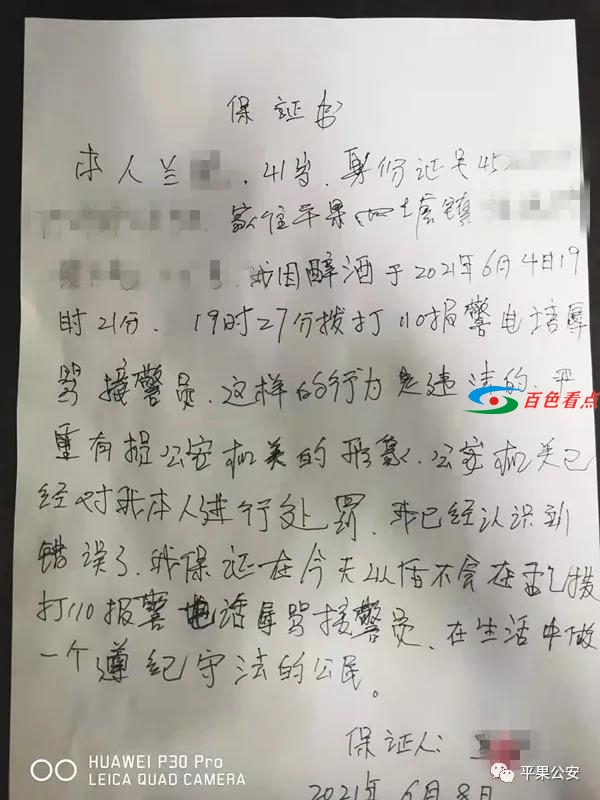 保证书
本人兰 ，41岁，身份证号45
家住平果 四塘镇
我因醉酒于2021年6月4日19
时21分、19时27分拨打110报警电话辱
骂接警员，这样的行为是违法的，严
重有损公安机关的形象，公安机关已
经对我本人进行处罚，我已经认识到
错误了，我保证在今天以后不会在乱拨
打110报警电话辱骂接警员，在生活中做
一个遵纪守法的公民。
保证人：
2021年6月8日
百色看点
HUAWEI P30 Pro
LEICA QUAD CAMERA
平果公安